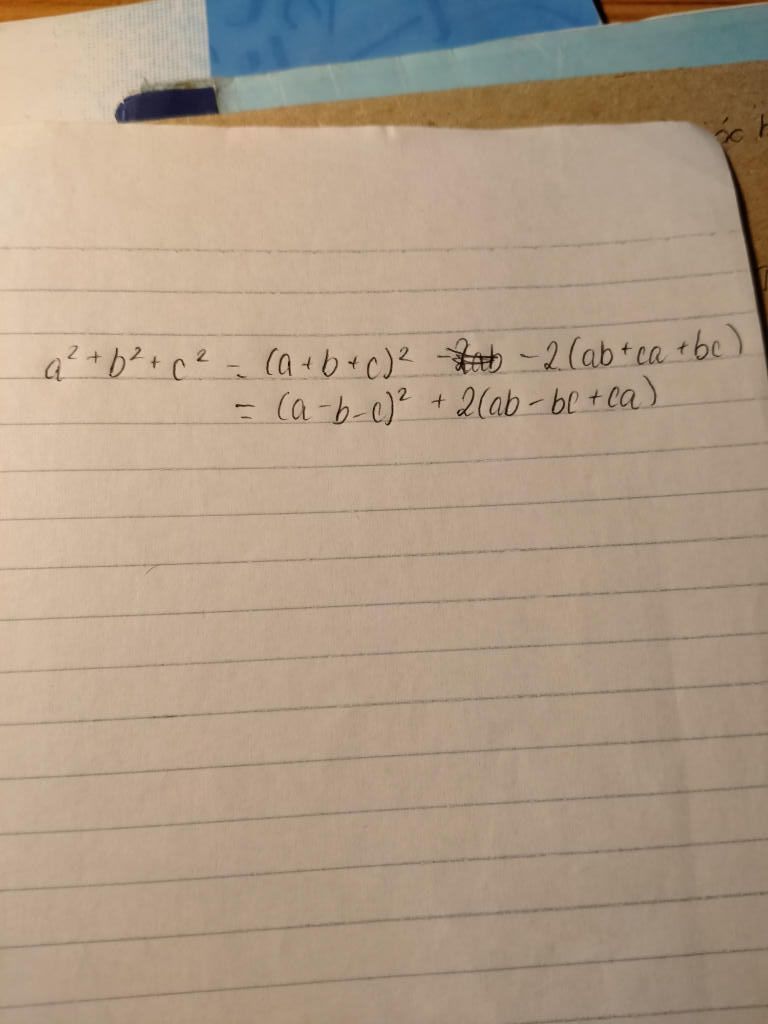 a² + b² + c² = (a + b + c)² - 2(ab + ca + bc)
= (a - b - c)² + 2(ab - bc + ca)